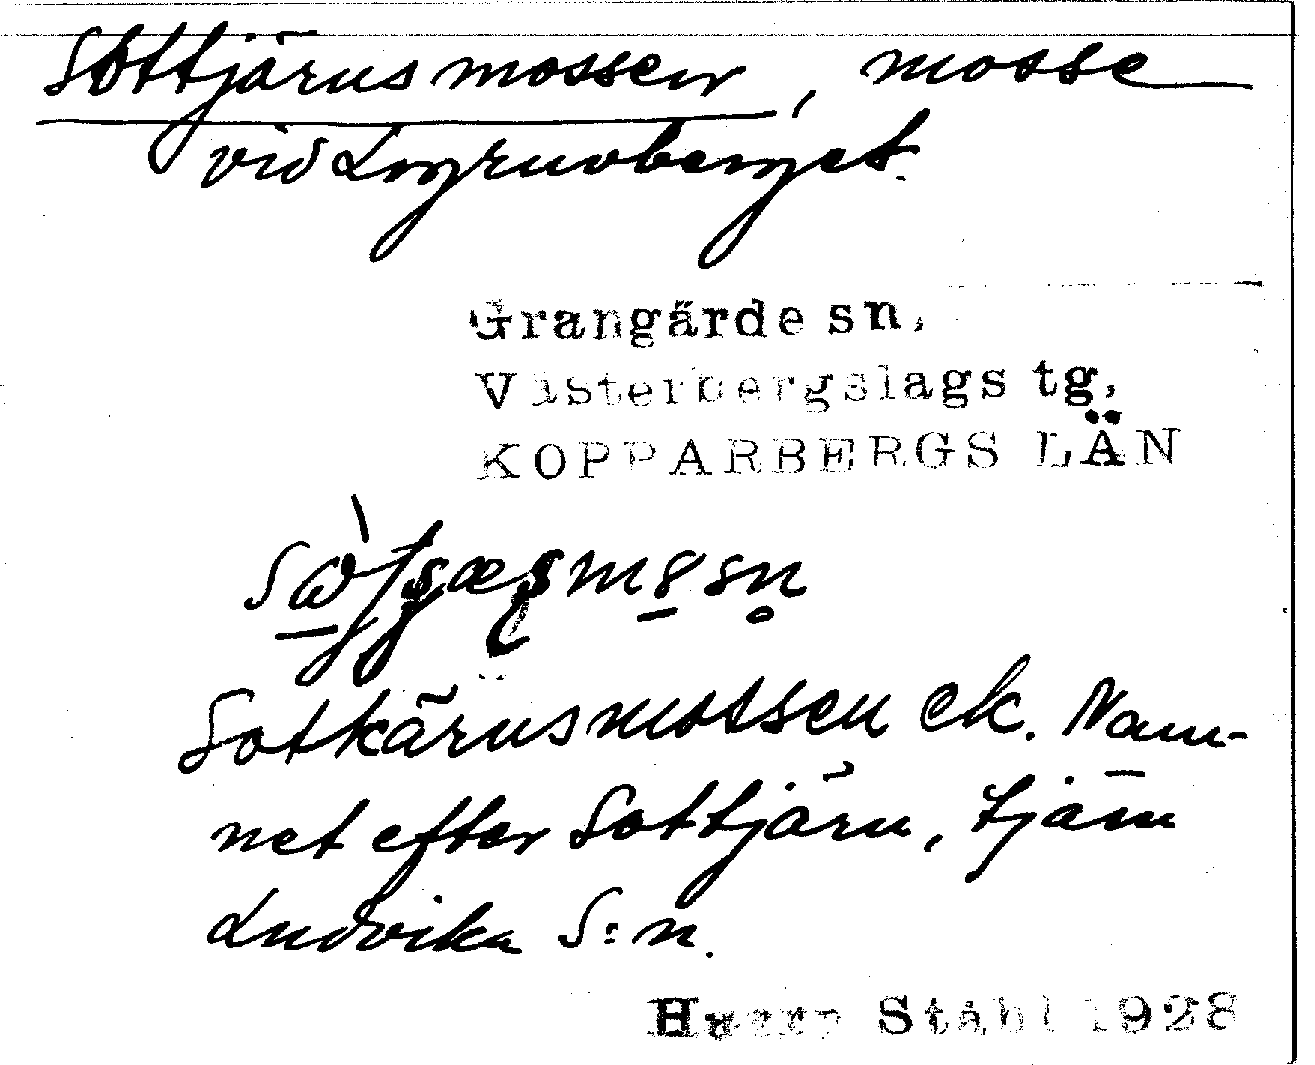 Sottjärnsmossen, mosse
vid Lomgruvberget.
Grangärde sn,
Västerbergslags tg,
KOPPARBERGS LÄN
Sotkärnsmossen ek. Nam-
net efter Sottjärn, tjärn
Ludvika S:n.
Harry Ståhl 1928